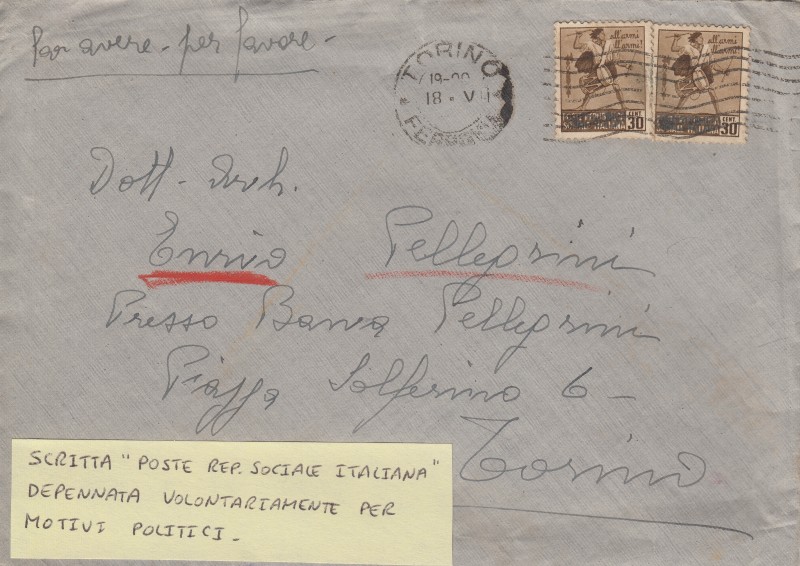 Far avere - per favore -
TORINO
19-20
18 · VII
FERROVIA
all'armi
all'armi!
CENT
30
all'armi
all'armi!
CENT
30
Dott. Arch.
Enrico Pellegrini
Presso Banca Pellegrini
Piazza Solferino 6 -
Torino
SCRITTA "POSTE REP. SOCIALE ITALIANA"
DEPENNATA VOLONTARIAMENTE PER
MOTIVI POLITICI -